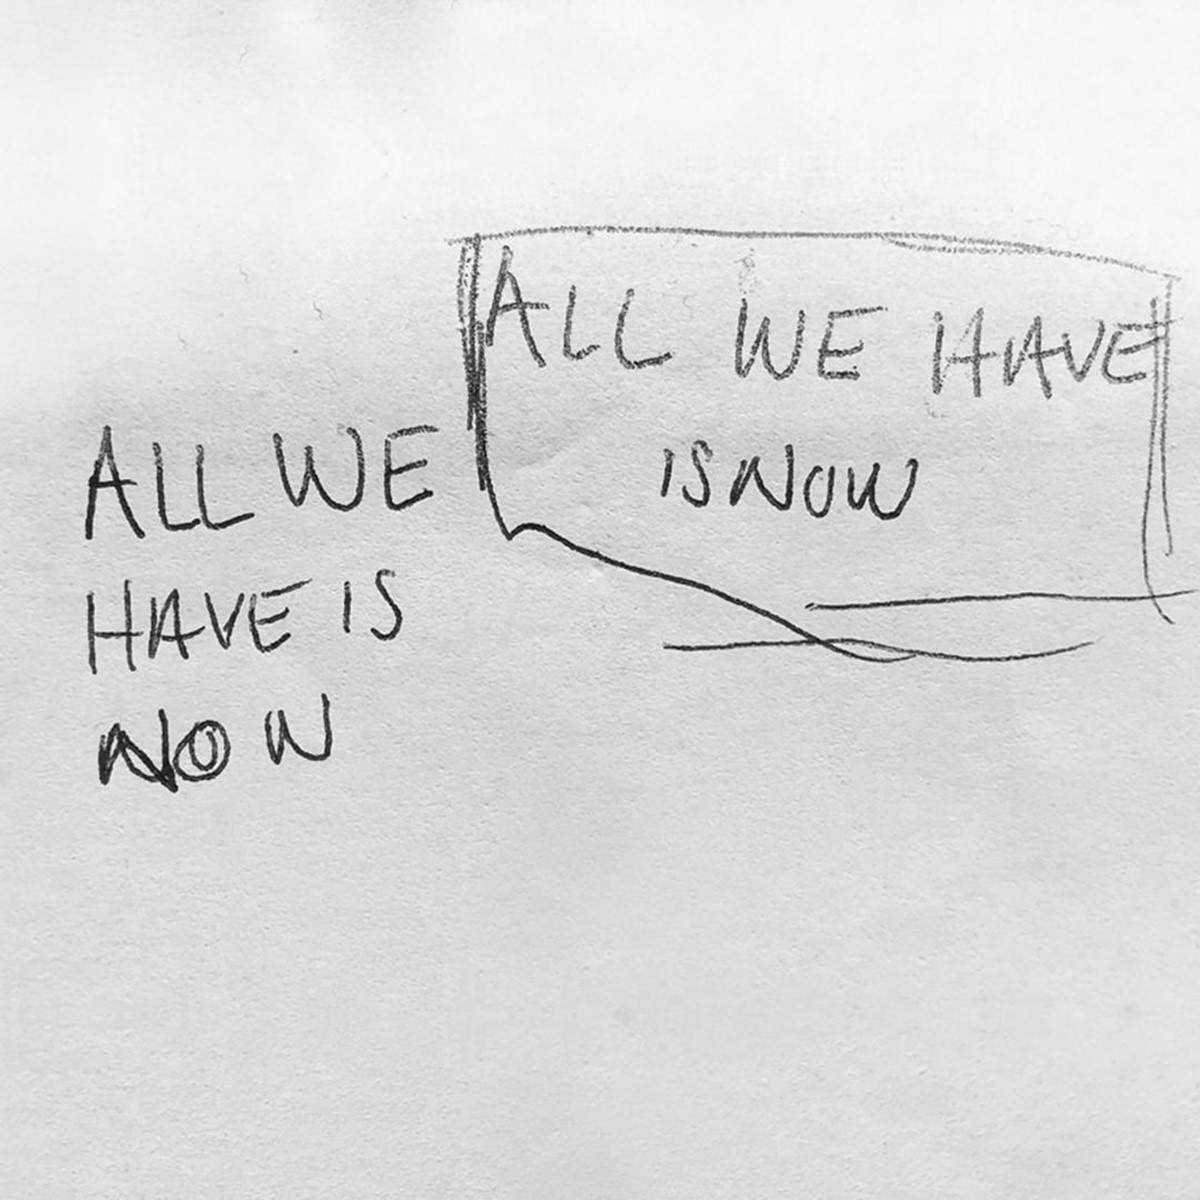 ALL WE HAVE
IS NOW
ALL WE
HAVE IS
NOW